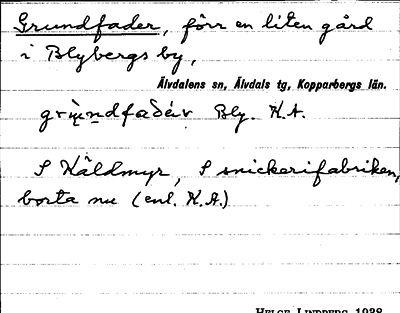 Grundfader, förr en liten gård
i Blybergs by,
Älvdalens sn, Älvdals tg, Kopparbergs län.
Bly. K.A.
S Käldmyr, S snickerifabriken,
borta nu (enl. K.A.)
HELGE LINDBERG 1938